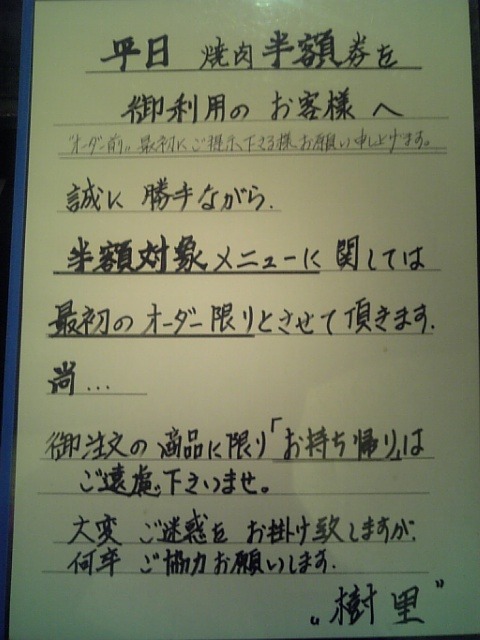 平日 焼肉半額券を
御利用の お客様 へ
"オーダー前"、最初にご提示下さる様、お願い申し上げます。
誠に 勝手ながら、
半額対象メニューに 関しては
最初のオーダー限りとさせて頂きます。
尚...
御注文の 商品に限り「お持ち帰り」は
ご遠慮、下さいませ。
大変 ご迷惑を お掛け致しますが、
何卒 ご協力お願いします。
"樹里"